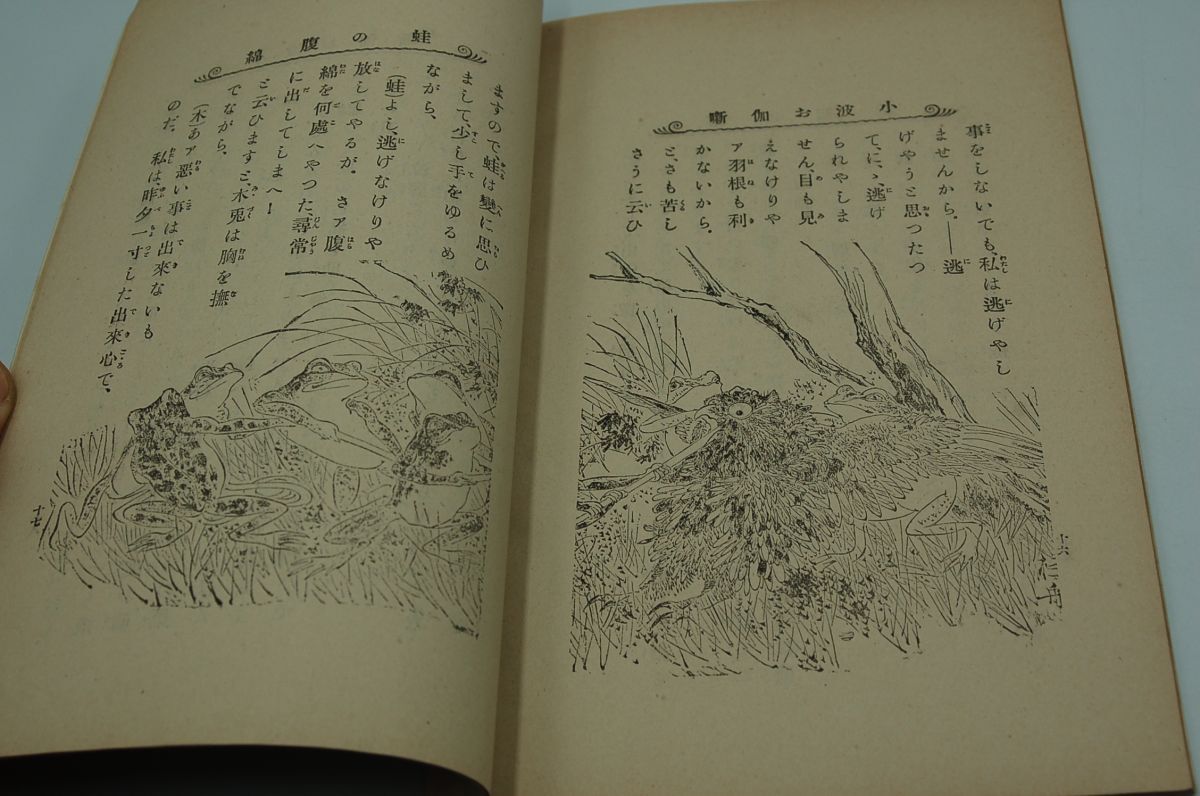 小波お伽噺
事をしないでも、私は逃げやし
ませんから。――逃
げやうと思つたつ
て、に、逃げ
られやしま
せん目も見
えなけりや
ア羽根も利
かないから。
と、さも苦し
さうに云ひ
十六
蛙の腹綿
ますので、蛙は變に思ひ
まして、少し手をゆるめ
ながら、
(蛙)よし、逃げなけりや
放してやるが。さァ腹
綿を何處へやつた尋常
に出してしまへ!
と云ひますと、木兎は胸を撫
でながら、
(木)あァ惡い事は出來ないも
のだ。私は、昨夕一寸した出來心で、
十七